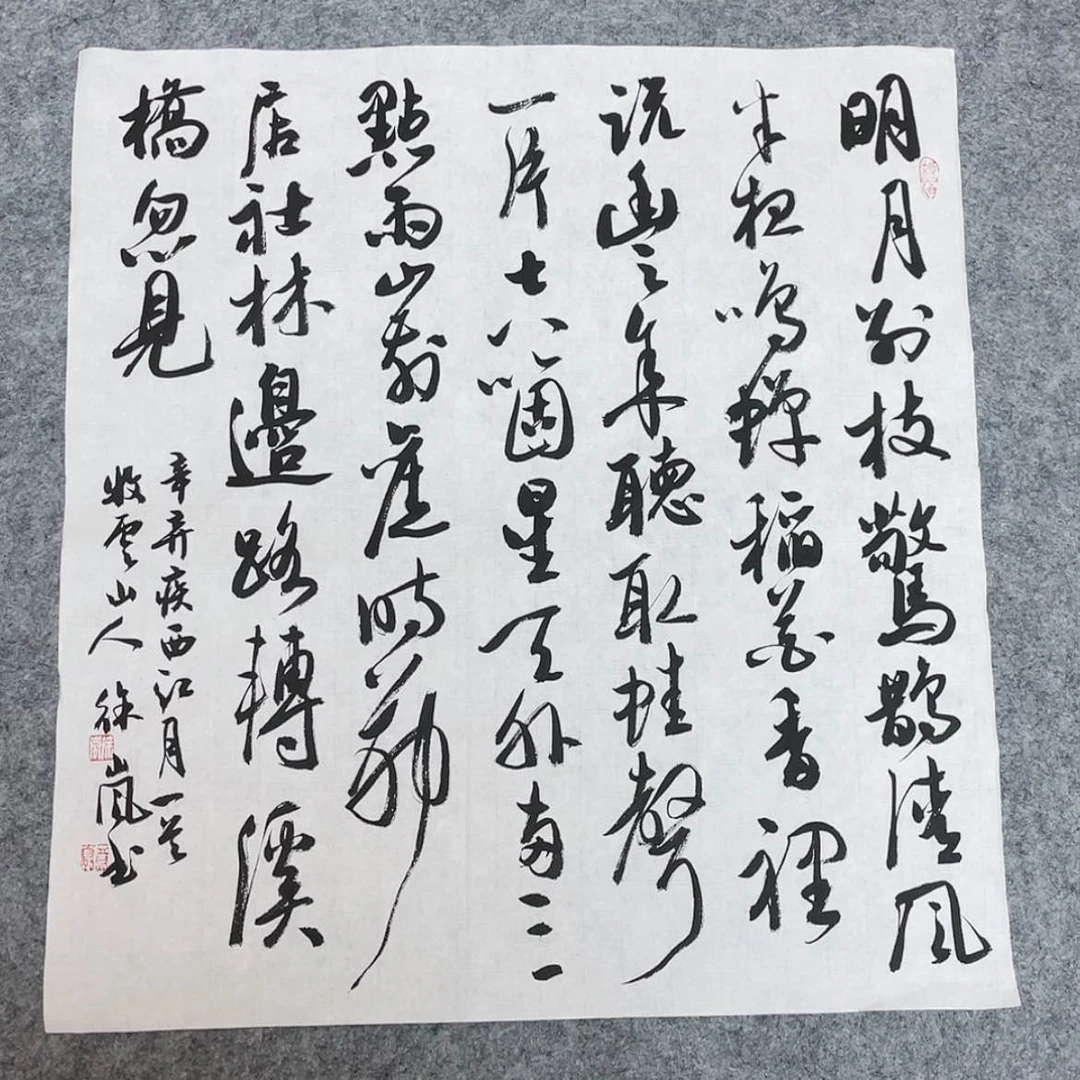 明月別枝驚鵲清風
半夜鳴蟬稻花香裡
説豐年聽取蛙聲
一片七八箇星天外兩三
點雨山前舊時茅
店社林邊路轉溪
橋忽見
辛弃疾西江月一首
雲山人 徐嵐书